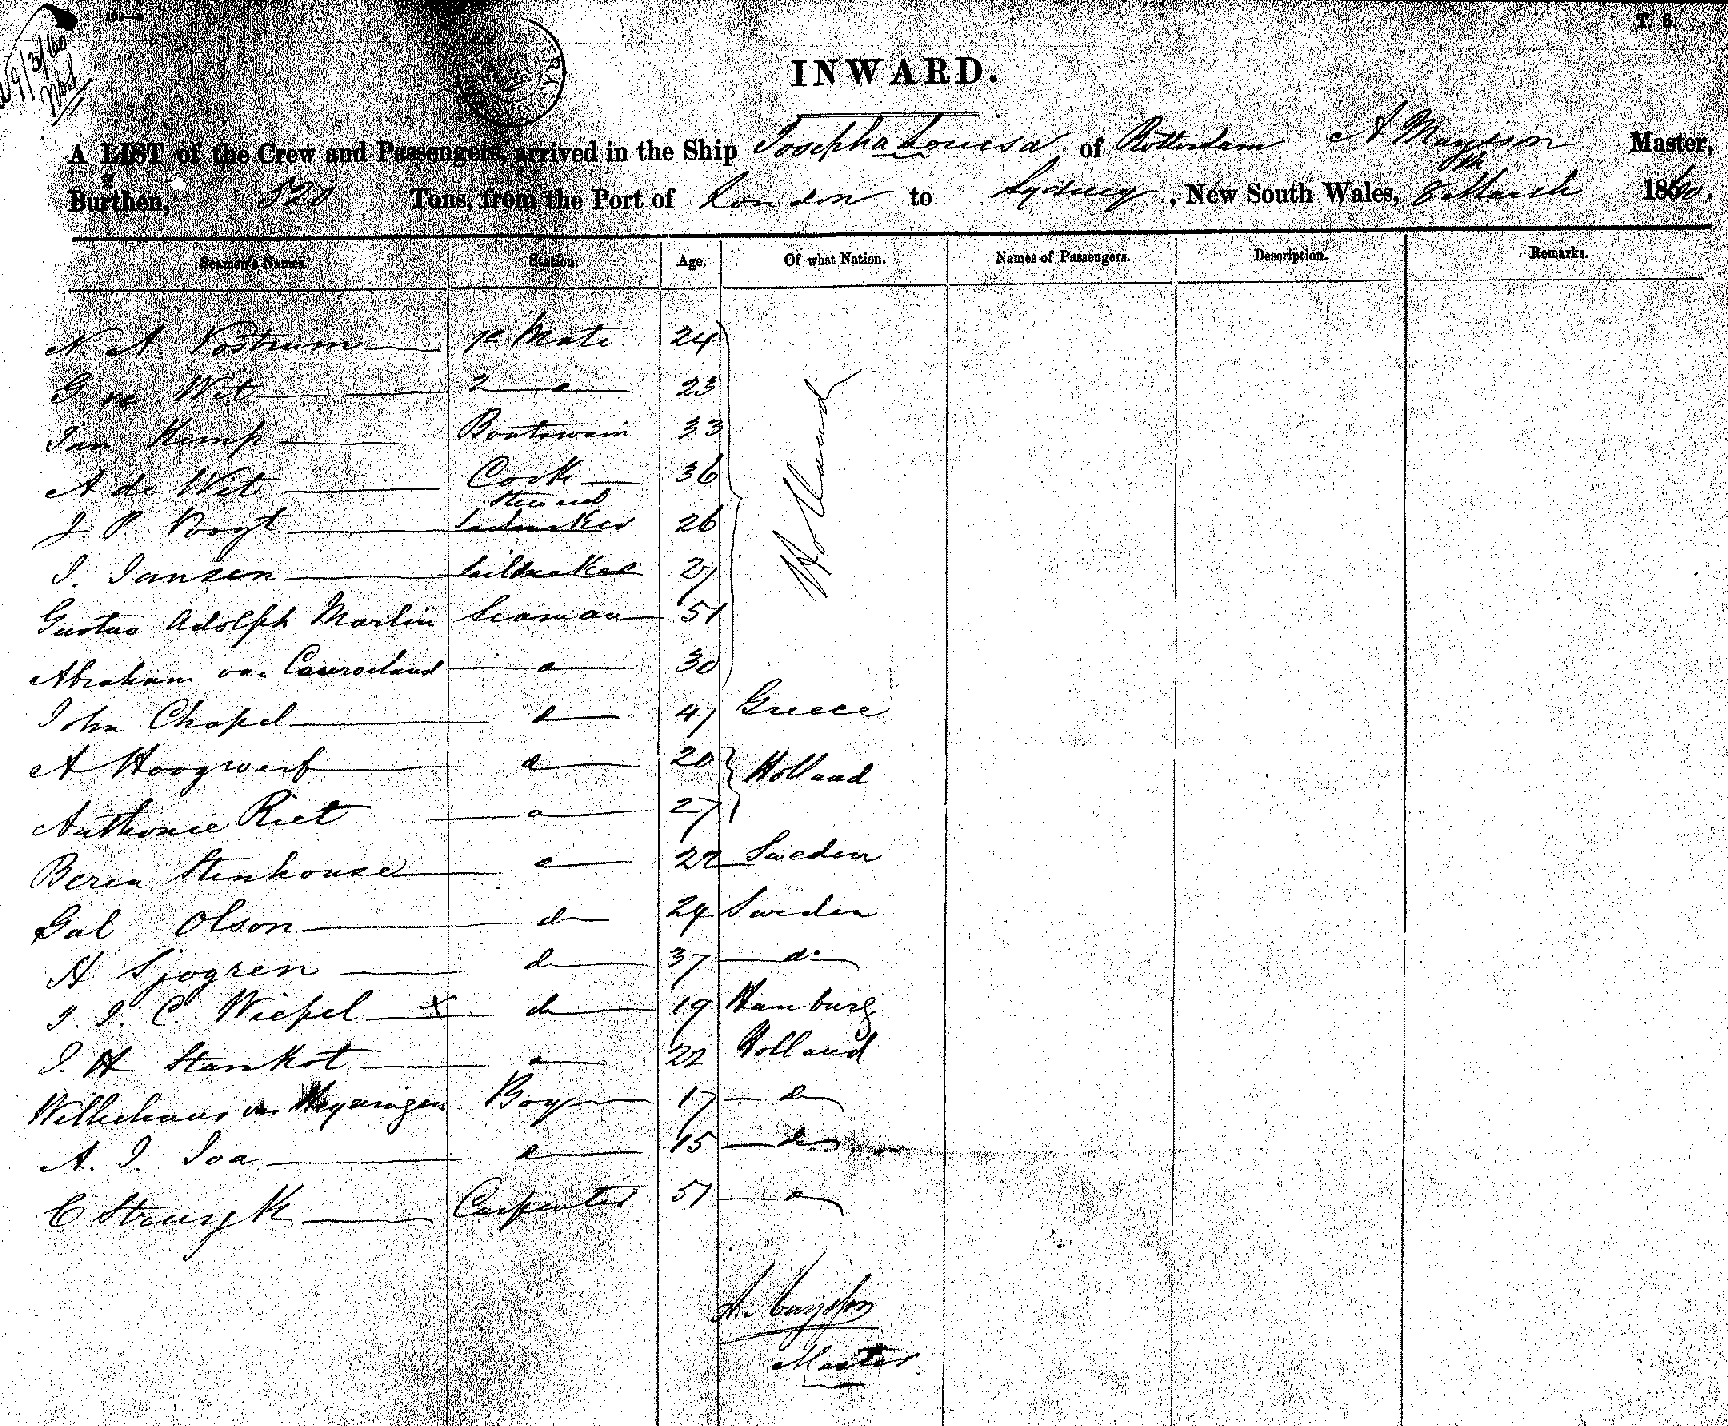 T. 5.
INWARD.
A LIST of the Crew and Passengers arrived in the Ship Josepha Louisa of Rotterdam A Master,
Burthen, 520 Tons, from the Port of London to Sydney, New South Wales, 8th March 1860.
Seamen's Names. Station. Age. Of what Nation. Names of Passengers. Description. Remarks.
N A Mate 24
G de Wit 2 d 23
Jan Kemp Boatswain 33
A de Wit Cook 36
Steward
J P 26
J. Jansen Sailmaker 27
Holland
Gustav Adolph Martin Seaman 51
Abraham van d 30
John Chapel d 41 Greece
A Hoogwerf d 20 Holland
Anthonie Riet d 27
Stenhouse d 22 Sweden
Olson d 24 Sweden
A Sjogren d 37 do
J. J. C. Wiepel X d 19 Hamburg
J. H Stankot d 22 Holland
van Boy 17 d
A. J. d 15 do
C Struyk Carpenter 51 d
Master